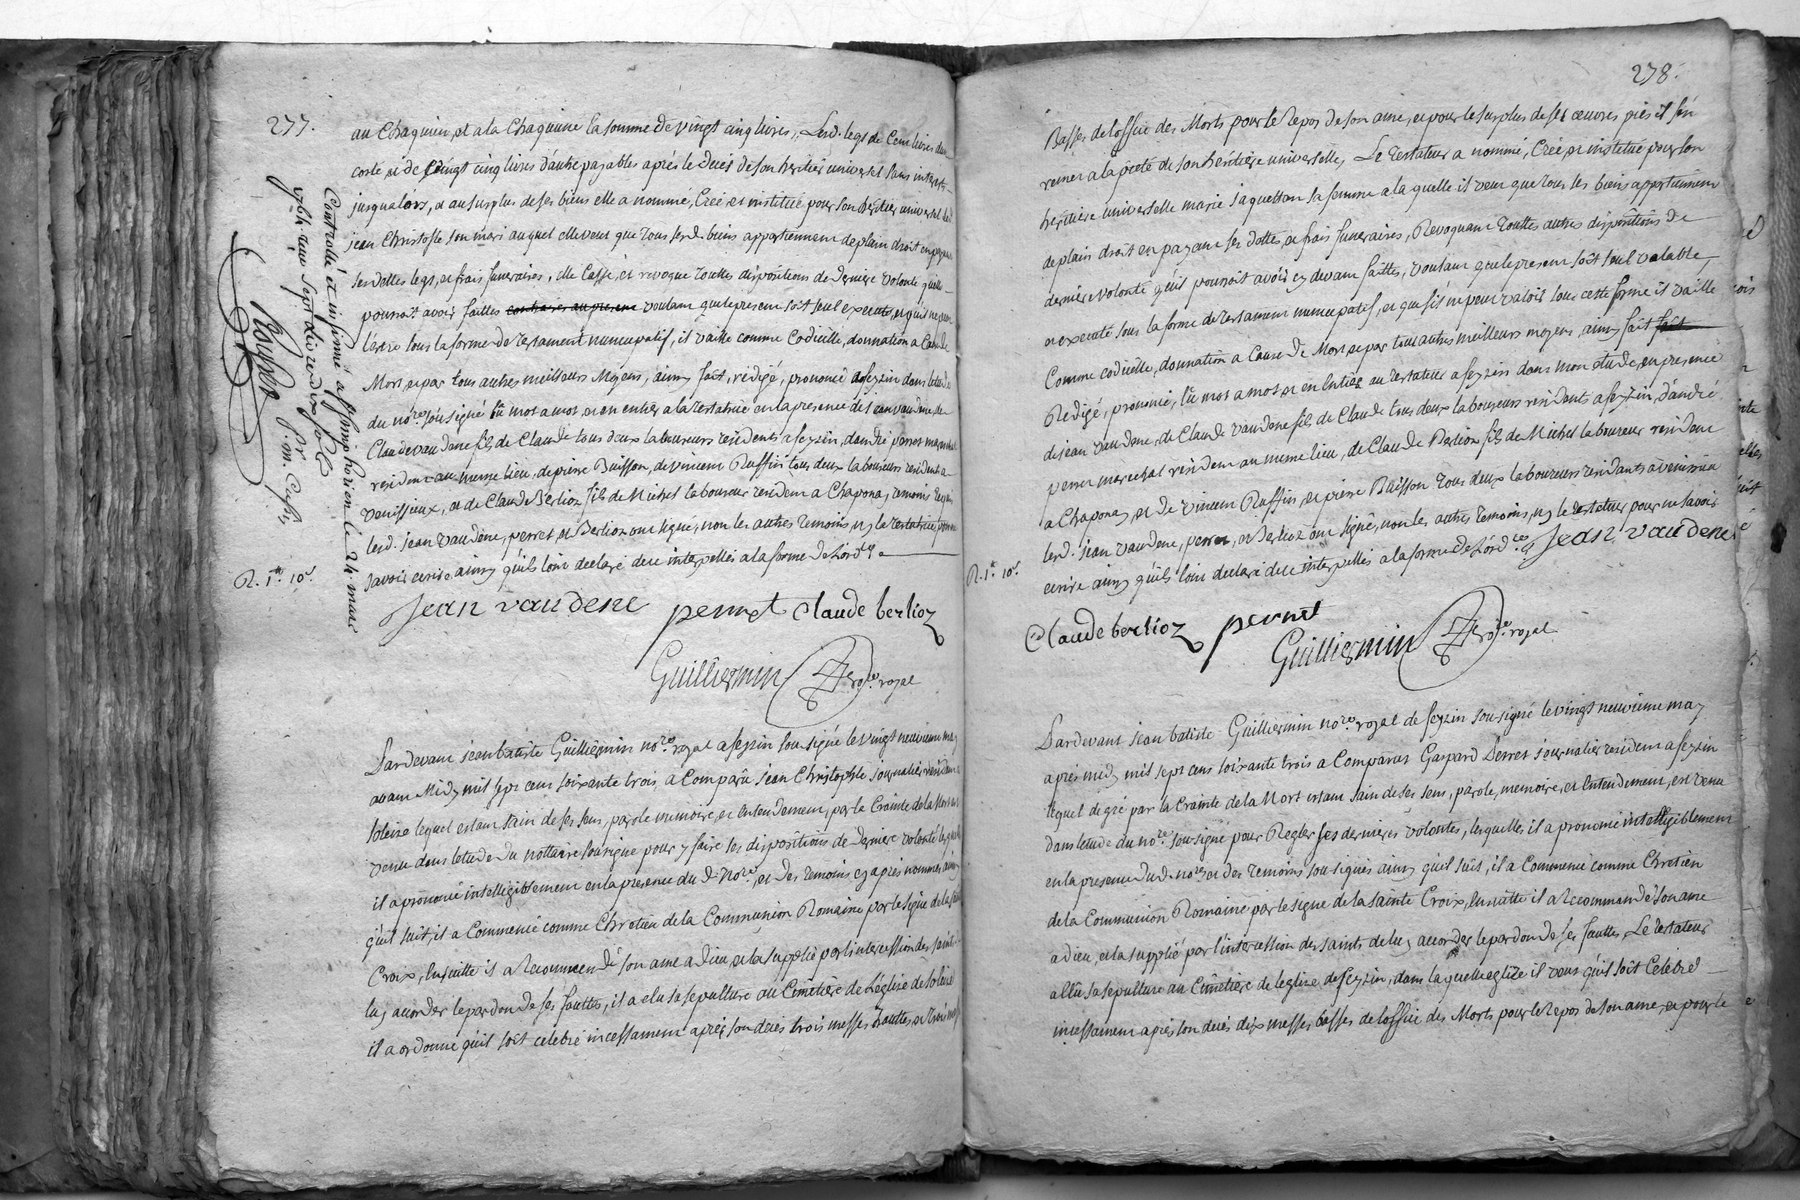 277.
au Chaquien, et a la Chaquune la somme de vingt cinq livres, Lesd. legs de Cent livres d'un
coste et de vingt cinq livres d'autre payables après le deces de son heritier universel sans interest
jusqualors, et au surplus de ses biens elle a nommé, Creé et institué pour son heritier universel led
jean Christofle son mari auquel elle veut que tous sesd. biens appartiennent de plain droit en payant
sesdettes legs, et frais funeraires, elle Casse, et revoque touttes dispositions de derniere volonté quelle
pourroit avoir faittes contraires au present voulant que le present soit seul executé, et quil ne peut
lestre sous la forme de testament nuncupatif, il vaille comme Codicille, donnation a Cause de
Mort et par tous autres meilleurs Moyens, ainsy fait, redigé, prononcé a feyzin dans letude
du no.re soussigné lû mot a mot et en entier a la testatrice en la presence de jean vaudene, de
Claude vaudene fils de Claude tous deux laboureurs residents a feyzin, dandré perret marechal
resident au meme lieu, de pierre Buisson, de vincent Ruffin tous deux laboureurs resident a
venissieux, et de Claude Berlioz fils de Michel laboureur resident a Chaponay, temoins requis
lesd. jean vaudene, perret et Berlioz ont signé, non les autres temoins, ny la testatrice pour ne
savoir ecrire ainsy quils lont declaré de ce interpellés a la forme de lord.ce
R. 1.tt 10.s
jean vaudene perret Claude berlioz
Guilliermin no.re royal
Controllé et insinué a St Simphorien le 24 mars
1764 reçu sept livres dix sols
Pardevant jean batiste Guilliermin no.re royal a feyzin soussigné le vingt neuvieme may
avant Midy mil sept cens soixante trois, a Comparû jean Christophle journalier resident a
solaize lequel estant sain de ses sens, parole memoire, et entendement, par la Crainte de la Mort est
venu dans letude du nottaire soussigné pour y faire ses dispositions de derniere volonté lesquelles
il a prononcé intelligiblement en la presence du d. No.re, et des temoins cy après nommés ainsy
qu'il suit, il a Commencé comme Chretien de la Communion Romaine par le signe de la sainte
Croix, Ensuitte il a Recommendé son ame a Dieu, et la supplié par l'intercession des saints de
luy accorder le pardon de ses fauttes, il a elu sa sepulture au Cimetière de l'eglise de solaise
il a ordonné qu'il soit celebré incessament après son decés trois messes hauttes, et trois messes
278.
Basses de loffice des Morts pour le repos de son ame, et pour le surplus de ses œuvres pies il s'en
remet a la pieté de son heritiere universelle, Le testateur a nommé, Creé, et institué pour son
heritiere universelle marie jaquetton sa femme a la quelle il veut que tous ses biens appartiennent
de plain droit en payant ses dettes, et frais funeraires, Revoquant touttes autres dispositions de
derniere volonté qu'il pourroit avoir cy devant faittes, voulant que le present soit seul valable,
et executé sous la forme de testament nuncupatif, et que s'il ne peut valoir sous cette forme il vaille
Comme codicille, donnation a Cause de Mort et par tous autres meilleurs moyens, ainsy fait fait
Redigé, prononcé, lû mot a mot et en Entier au testateur a feyzin dans mon etude, en presence
de jean vaudene, de Claude vaudene fils de Claude tous deux laboureurs residents a feyzin, d'andré
perret marechal resident au meme lieu, de Claude Berlioz fils de Michel laboureur resident
a Chaponay, et de vincent Ruffin, et pierre Buisson tous deux laboureurs residants a venissieux
lesd. jean vaudene, perret, et Berlioz ont signé, non les autres temoins, ny le testateur pour ne savoir
ecrire ainsy qu'ils lont declaré de ce interpellés a la forme de lord.ce jean vaudene
R. 1.tt 10.s
Claude berlioz perret
Guilliermin no.re royal
Pardevant jean batiste Guilliermin no.re royal de feyzin soussigné le vingt neuvieme may
après midy mil sept cens soixante trois a Comparut Gaspard Perret journalier resident a feyzin
lequel de gré par la Crainte de la Mort estant sain de ses sens, parole, memoire, et Entendement, est venu
dans letude du no.re soussigné pour Regler ses dernieres volontes, lesquelles il a prononcé intelligiblement
en la presence dud. no.re et des temoins soussignés ainsy quil suit, il a Commencé comme Chretien
de la Communion Romaine par le signe de la sainte Croix, Ensuitte il a Recommandé son ame
a dieu, et la supplié par l'intercession des saints de luy accorder le pardon de ses fauttes, Le testateur
a elû sa sepulture au Cimetière de leglise de feyzin, dans laquelle eglize il veut qu'il soit Celebré
incessament après son decés dix messes basses de loffice des Morts pour le repos de son ame, et pour le